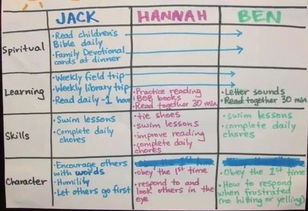 JACK
HANNAH
BEN
Spiritual
• Read children's
Bible daily
• Family Devotional
cards at dinner
Learning
• Weekly field trip
• Weekly library trip
• Read daily - 1 hour
• Practice reading
BOB books
• Read together 30 min
• Letter sounds
• Read together 30 min
Skills
• Swim lessons
• Complete daily
chores
• tie shoes
• swim lessons
• improve reading
• complete daily
chores
• swim lessons
• complete daily
chores
Character
• Encourage others
with words
• Humility
• Let others go first
• obey the 1st time
• respond to and
look others in the
eye
• Obey the 1st time
• How to respond
when frustrated
(no hitting or yelling)